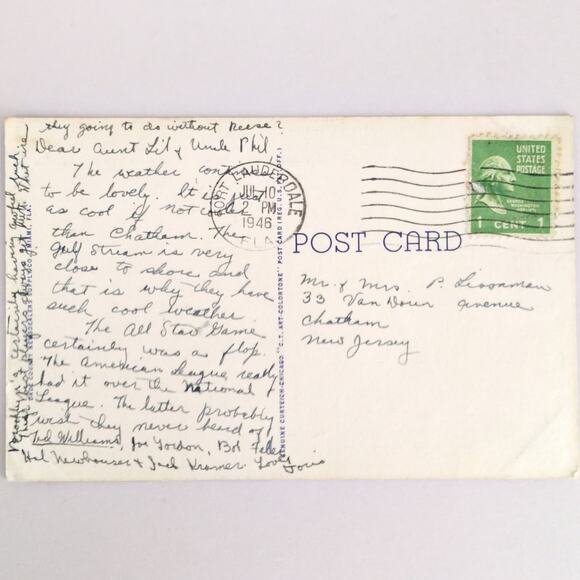 they going to do without Reese?
Dear Aunt Lil & Uncle Phil
The weather continues
to be lovely. It is just
as cool if not cooler
than Chatham. The
Gulf Stream is very
close to shore and
that is why they have
such cool weather
The All Star Game
certainly was a flop.
The American League really
had it over the National
League. The latter probably
wish they never heard of
Ted Williams, Joe Gordon, Bob Feller
Hal Newhouser & Jack Kramer Love
Brooklyn is certainly having
players always get hurt. What are
FORT LAUDERDALE
JUL 10
2 PM
1946
FLA
POST CARD
UNITED
STATES
POSTAGE
GEORGE
WASHINGTON
1 CENT 1
Mr. & Mrs. P.
33 Van Doren avenue
Chatham
New Jersey
GENUINE CURTEICH-CHICAGO "C.T. ART-COLORTONE" POST CARD (REG. U.S. PAT. OFF.)
MIAMI, FLA.